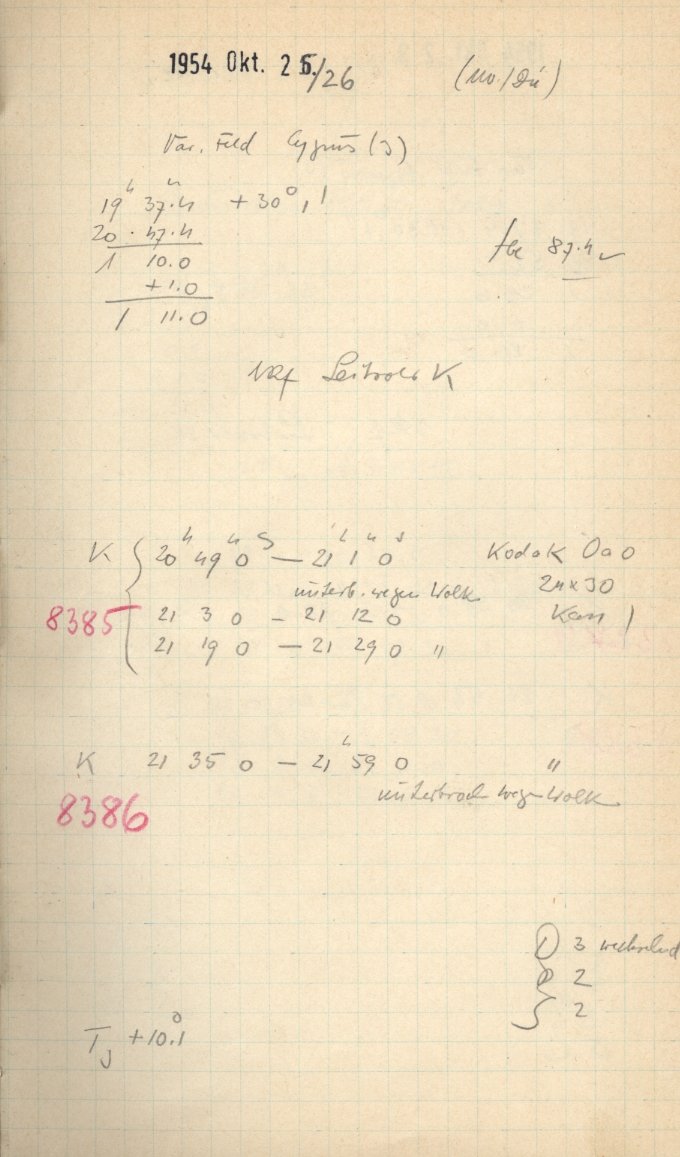 1954 Okt. 25./26 (No./Dü)
Var. Feld Cygnus (3)
19ʰ 37.4 + 30°,1
20 . 47.4
1 10.0 87.4
+ 1.0
1 11.0
K
K 20ʰ 49 0ˢ — 21ʰ 1 0ˢ Kodak OaO
unterb. wegen Wolk 24x30
8385 21 3 0 - 21 12 0 Kass 1
21 19 0 — 21 29 0 "
K 21 35 0 — 21ʰ 59 0 "
8386 unterbroch wegen Wolk
3 wechselnd
2
2
T + 10.°1